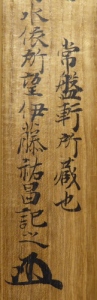 常盤軒所蔵也
水依所望伊藤祐昌記之